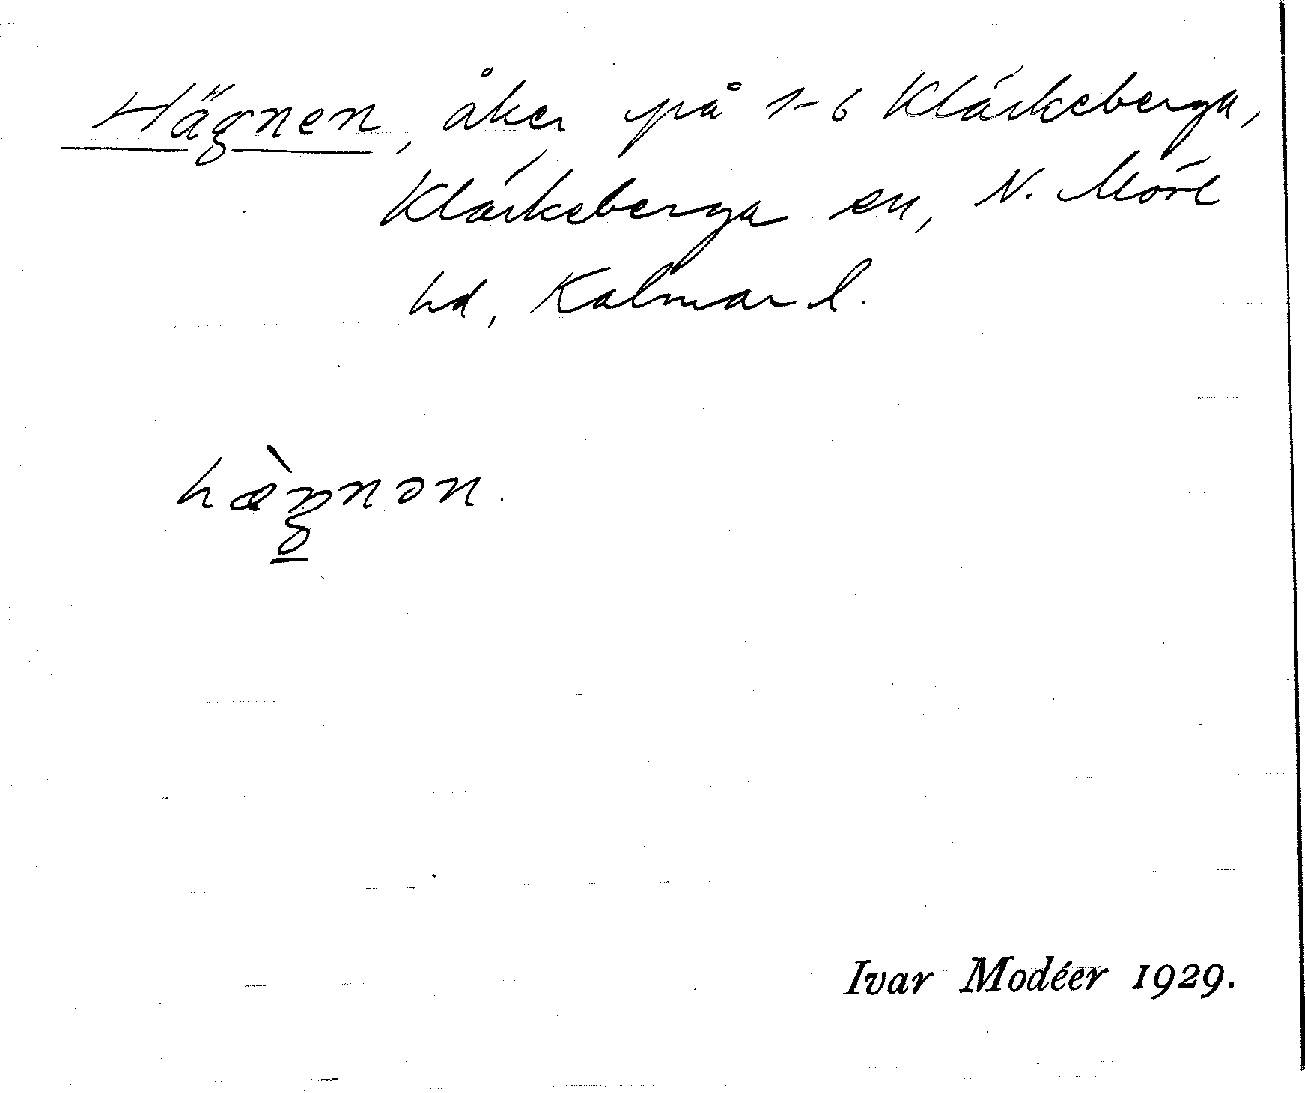 Hägnen, åker på 1-6 Kläckeberga,
Kläckeberga sn, N. Möre
hd, Kalmar l.
hæ̀gnən.
Ivar Modéer 1929.